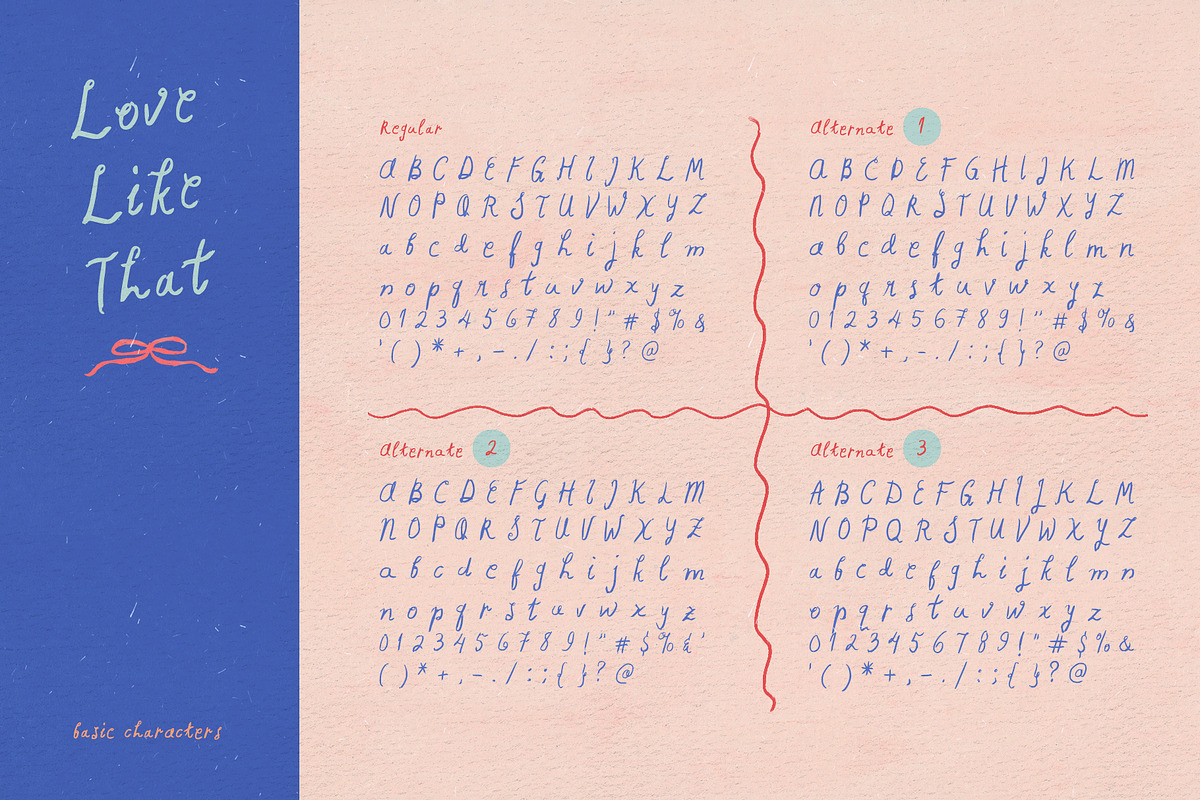 Love
Like
That
basic characters
Regular
a B C D E F G H I J K L M
N O P Q R S T U V W X Y Z
a b c d e f g h i j k l m
n o p q r s t u v w x y z
0 1 2 3 4 5 6 7 8 9 ! " # $ % &
' ( ) * + , - . / : ; { } ? @
Alternate 1
a B C D E F G H I J K L m
n O P Q R S T U V W X Y Z
a b c d e f g h i j k l m n
o p q r s t u v w x y z
0 1 2 3 4 5 6 7 8 9 ! " # $ % &
' ( ) * + , - . / : ; { } ? @
Alternate 2
a B C D E F G H I J K L m
n O P Q R S T U V W X Y Z
a b c d e f g h i j k l m
n o p q r s t u v w x y z
0 1 2 3 4 5 6 7 8 9 ! " # $ % & '
( ) * + , - . / : ; { } ? @
Alternate 3
A B C D E F G H I J K L M
N O P Q R S T U V W X Y Z
a b c d e f g h i j k l m n
o p q r s t u v w x y z
0 1 2 3 4 5 6 7 8 9 ! " # $ % &
' ( ) * + , - . / : ; { } ? @